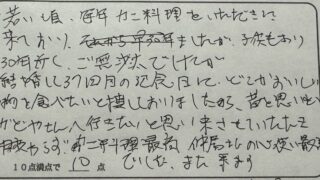 若い頃、毎年カニ料理をいただきに
来ており、 ましたが、子供もおり
30年近く、ご無沙汰でしたが
結婚して37回目の記念日に、どこかおいしい
物を食べたいと探しておりましたら、昔を思い出し
かどやさんへ行きたいと思い来させていただき
相変わらず カニ料理最高 の心使い最高
でした。また来ます
10点満点で 10 点